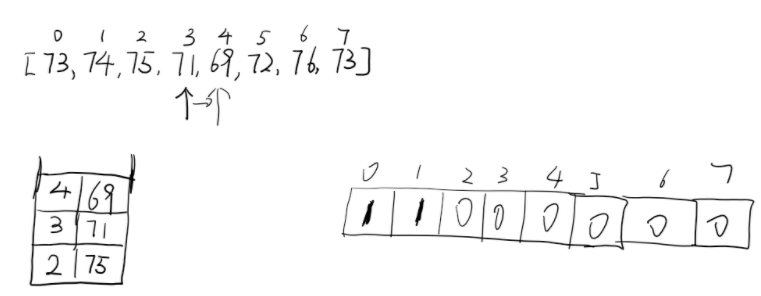 0 1 2 3 4 5 6 7
[73, 74, 75, 71, 69, 72, 76, 73]
4 69
3 71
2 75
0 1 2 3 4 5 6 7
1 1 0 0 0 0 0 0